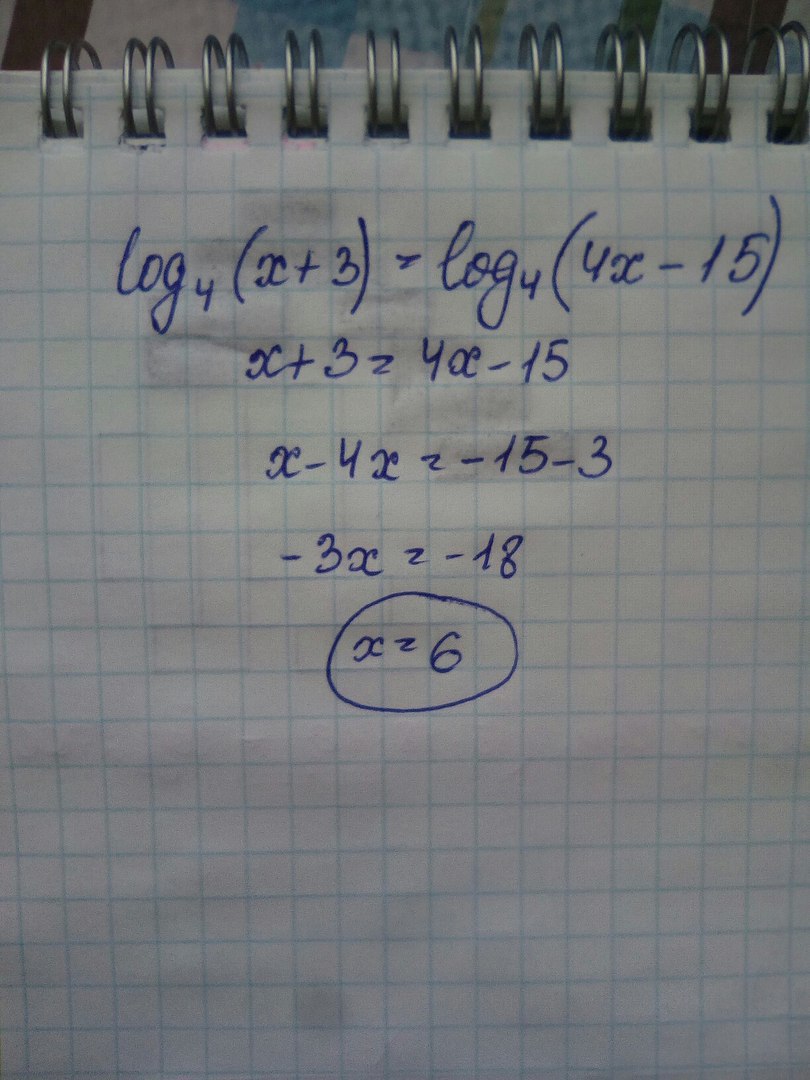 log₄(x+3) = log₄(4x-15)
x+3 = 4x-15
x-4x = -15-3
-3x = -18
x = 6